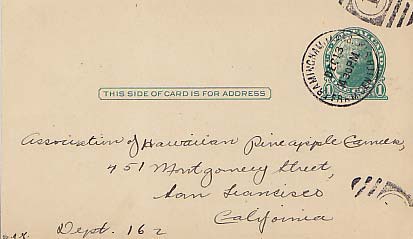 FRAMINGHAM, MASS.
DEC 13
430 PM
FRAMINGHAM CENTER
1 1
THIS SIDE OF CARD IS FOR ADDRESS
Association of Hawaiian Pineapple Canners,
451 Montgomery Street,
San Francisco
California
Dept. 162